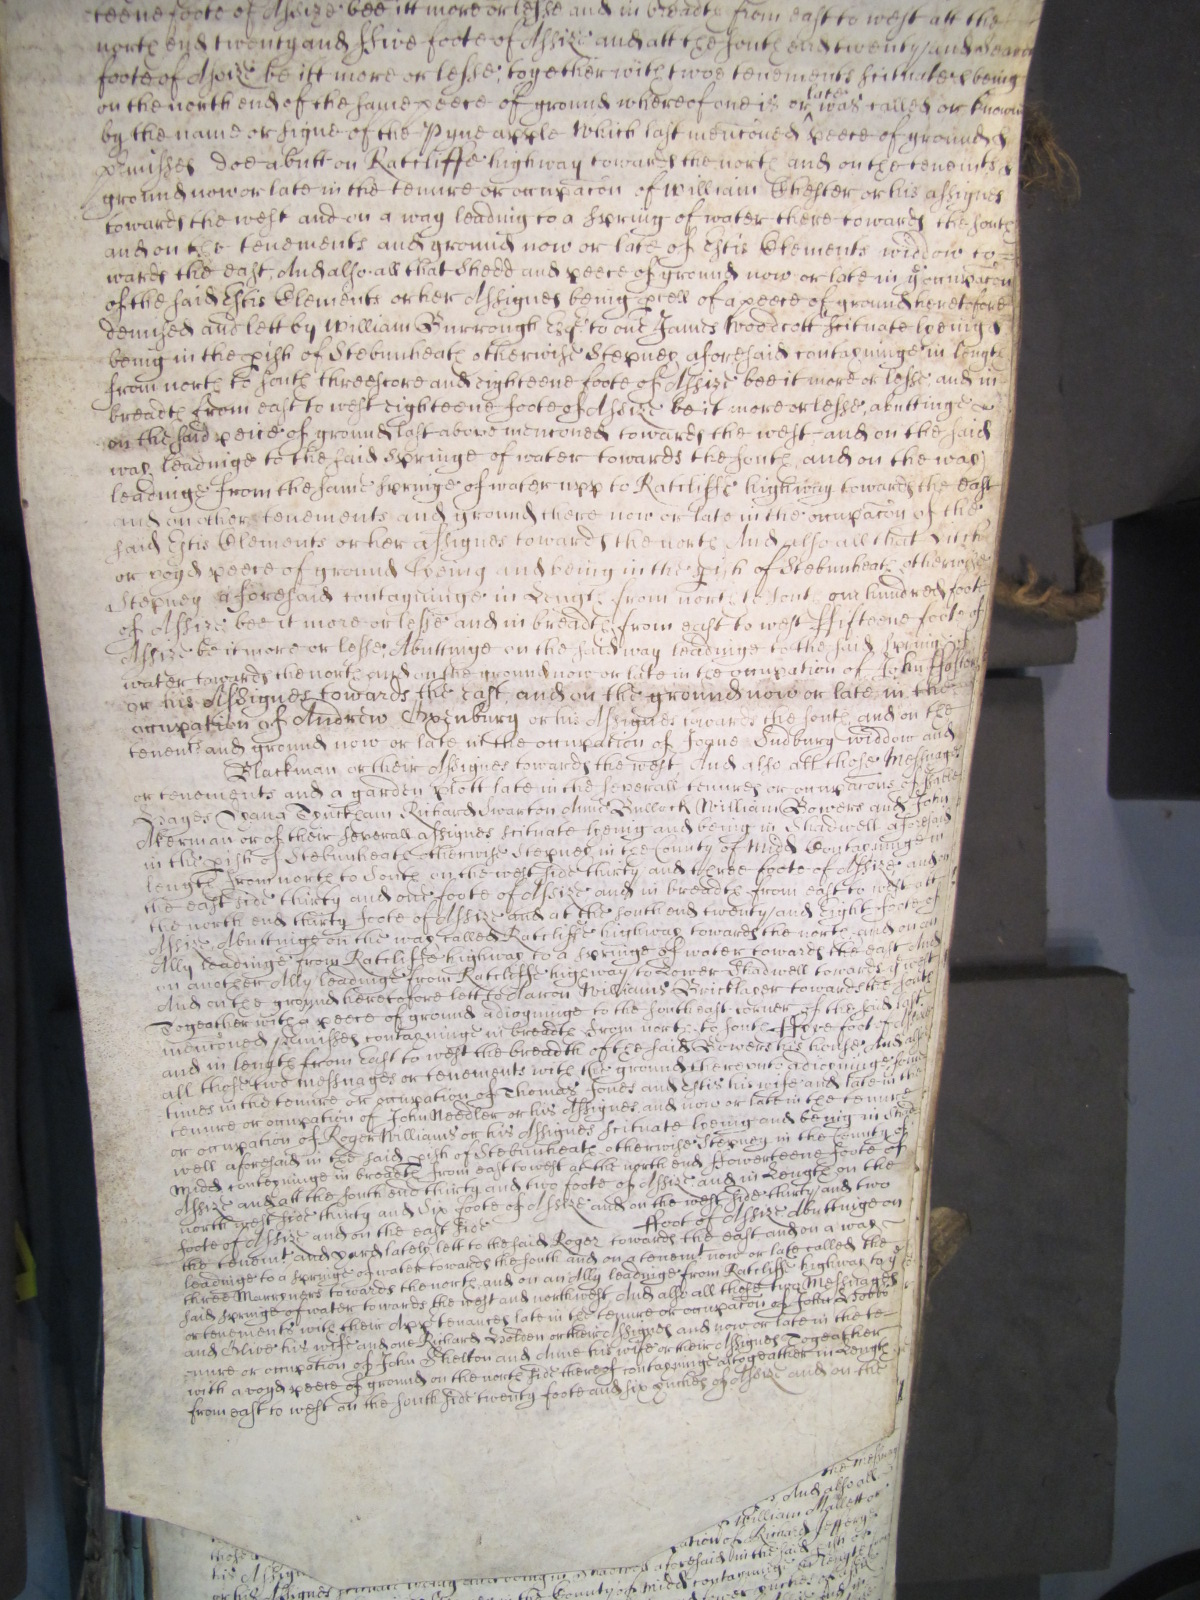 teene foote of Assize bee itt more or lesse and in breadth from east to west att the
north end twenty and ffive foote of Assize and att the south end twenty and seaven
foote of Assize be itt more or lesse, together with twoe tenements scituate & being
on the north end of the same peece of ground whereof one is or late was called or knowne
by the name or signe of the Pyne apple Which last menconed peece of ground &
pmisses doe abutt on Ratcliffe highway towards the north and on the tenemts &
ground now or late in the tenure or occupacon of William Chester or his assignes
towards the west and on a way leading to a Spring of water there towards the south
and on the tenements and ground now or late of Clements widdow to=
wards the east, And also all that Shedd and peece of ground now or late in ye occupacon
of the said Clements or her Assignes being pcell of a peece of ground heretofore
demised and lett by William Burrough Esqr to one James Woodcott Scituate lyeing &
being in the pish of Stebunheath otherwise Stepney aforesaid contayninge in length
from north to south threescore and eighteene foote of Assize bee it more or lesse, and in
breadth from east to west eighteene foote of Assize be it more or lesse, abuttinge
on the said peice of ground last above menconed towards the west and on the said
way leadinge to the said Springe of water towards the south, and on the way
leadinge from the same Springe of water upp to Ratcliffe highway towards the east
and on other tenements and ground there now or late in the occupacon of the
said Clements or her assignes towards the north And also all that
or voyd peece of ground lyeing and being in the pish of Stebunheath otherwise
Stepney aforesaid contayninge in length from north to south one hundred foote
of Assize bee it more or lesse and in breadth from east to west ffifteene foote of
Assize be it more or lesse, Abuttinge on the said way leadinge to the said Spring of
water towards the north and on the ground now or late in the occupation of John
or his Assignes towards the east, and on the ground now or late in the
occupation of Andrew Oxenburg or his Assignes towards the south and on the
tenemt and ground now or late in the occupation of Joane Sudbury widdow and
Blackman or their Assignes towards the west And also all those Messuages
or tenements and a garden plott late in the severall tenures or occupacons of
Richard Swarton Anne Bullock William Bowers and John
Akerman or of their severall assignes scituate lyeing and being in Shadwell aforesaid
in the pish of Stebunheath otherwise Stepney in the County of Midd Contayninge in
length from north to south on the west side thirty and three foote of Assize and on
the east side thirty and one foote of Assize and in breadth from east to west att
the north end thirty foote of Assize and at the south end twenty and eight foote of
Assize Abuttnige on the way called Ratcliffe highway towards the north and on an
Ally leadinge from Ratcliffe highway to a Springe of water towards the east And
on another Ally leadinge from Ratcliffe highway to Lower Shadwell towards ye west
And on the ground heretofore lett to Aaron Williams Bricklayer towards the south
Togeather with a peece of ground adioyninge to the southeast corner of the said last
menconed pmisses contayninge in breadth from north to south ffyve foot of Assize
and in length from east to west the breadth of the said Bowers his house, And also
all those two messuages or tenements with the ground thereunto adioyninge some
times in the tenure or occupation of Thomas Jones and his wife and late in the
tenure or occupation of John Needler or his Assignes and now or late in the tenure
or occupation of Roger Williams or his Assignes scituate lyeing and being in Shad
well aforesaid in the said pish of Stebunheath otherwise Stepney in the County of
Midd conteyninge in breadth from east to west at the north end ffowerteene foote of
Assize and att the south end thirty and two foote of Assize and in Length on the
north west side thirty and Six foote of Assize and on the west side thirty and two
foote of Assize and on the east side ffoot of Assize Abuttnige on
the tenemt and yard lately lett to the said Roger towards the east and on a way
leadinge to a springe of water towards the south and on a tenemt now or late called the
three Marryners towards the north and on an Ally leadinge from Ratcliffe highway to ye
said Springe of water towards the west and northwest And also all those two Messuages
or tenements with their Appurtenances late in the tenure or occupacon of John
and Olive his wife and one Richard or their Assignes and now or late in the te=
nure or occupation of John Skelton and Anne his wife or their Assignes Togeather
with a voyd peece of ground on the north side thereof contayninge altogeather in Length
from east to west on the south side twenty foote and six ynches of Assize and on the
the Messuag
And also all
William Mallett or
ation of Richard Jefferys
those
his Assigns scituate lyeing and being in Shadwell aforesaid in the said pish of
or his Assignes in the County of Midd contayninge in length